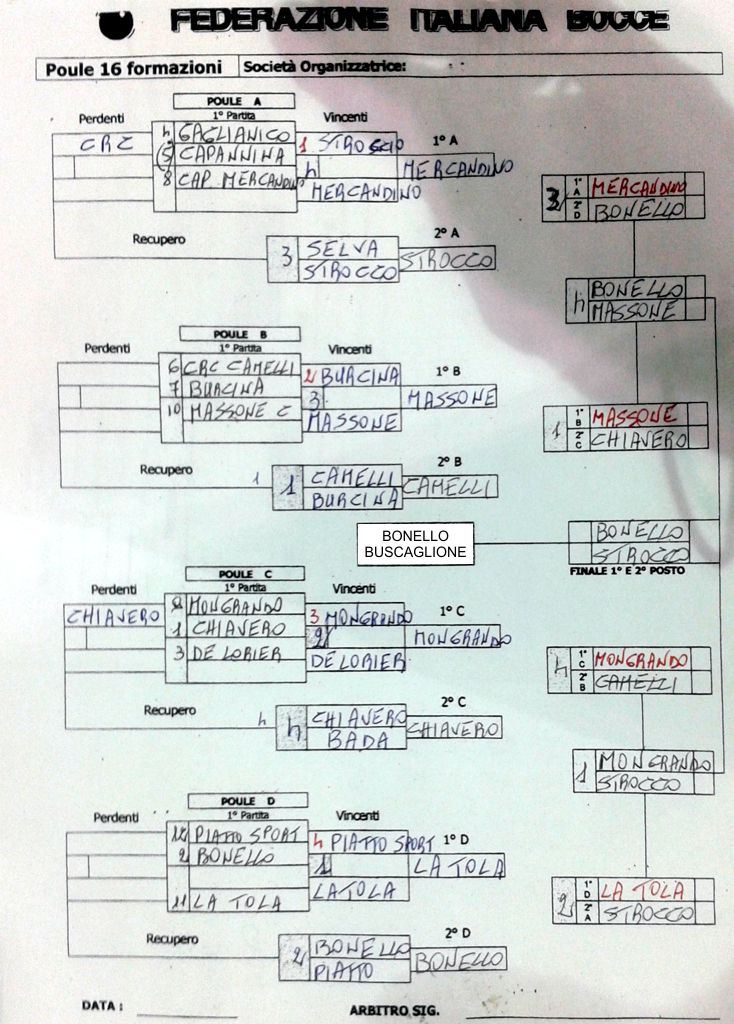 FEDERAZIONE ITALIANA BOCCE
Poule 16 formazioni
Società Organizzatrice:
POULE A
Perdenti
1° Partita
Vincenti
CRC
4 GAGLIANICO
(5) CAPANNINA
8 CAP. MERCANDINO
1 STROCCIO
4
MERCANDINO
1° A
MERCANDINO
Recupero
3
SELVA
STROCCO
2° A
STROCCO
POULE B
Perdenti
1° Partita
Vincenti
6 CRC CAMELLI
7 BURCINA
10 MASSONE C
2 BURCINA
3
MASSONE
1° B
MASSONE
Recupero
1
1
CAMELLI
BURCINA
2° B
CAMELLI
BONELLO
BUSCAGLIONE
POULE C
Perdenti
1° Partita
Vincenti
CHIAVERO
8 MONGRANDO
1 CHIAVERO
3 DE LORIER
3 MONGRANDO
2
DE LORIER
1° C
MONGRANDO
Recupero
4
4
CHIAVERO
BADA
2° C
CHIAVERO
POULE D
Perdenti
1° Partita
Vincenti
12 PIATTO SPORT
2 BONELLO
11 LA TOLA
4 PIATTO SPORT
1
LA TOLA
1° D
LA TOLA
Recupero
2
BONELLO
PIATTO
2° D
BONELLO
3
1° A MERCANDINO
2° D BONELLO
4
BONELLO
MASSONE
1
1° B MASSONE
2° C CHIAVERO
BONELLO
STROCCO
FINALE 1° E 2° POSTO
4
1° C MONGRANDO
2° B CAMELLI
1
MONGRANDO
STROCCO
2
1° D LA TOLA
2° A STROCCO
DATA :
ARBITRO SIG.